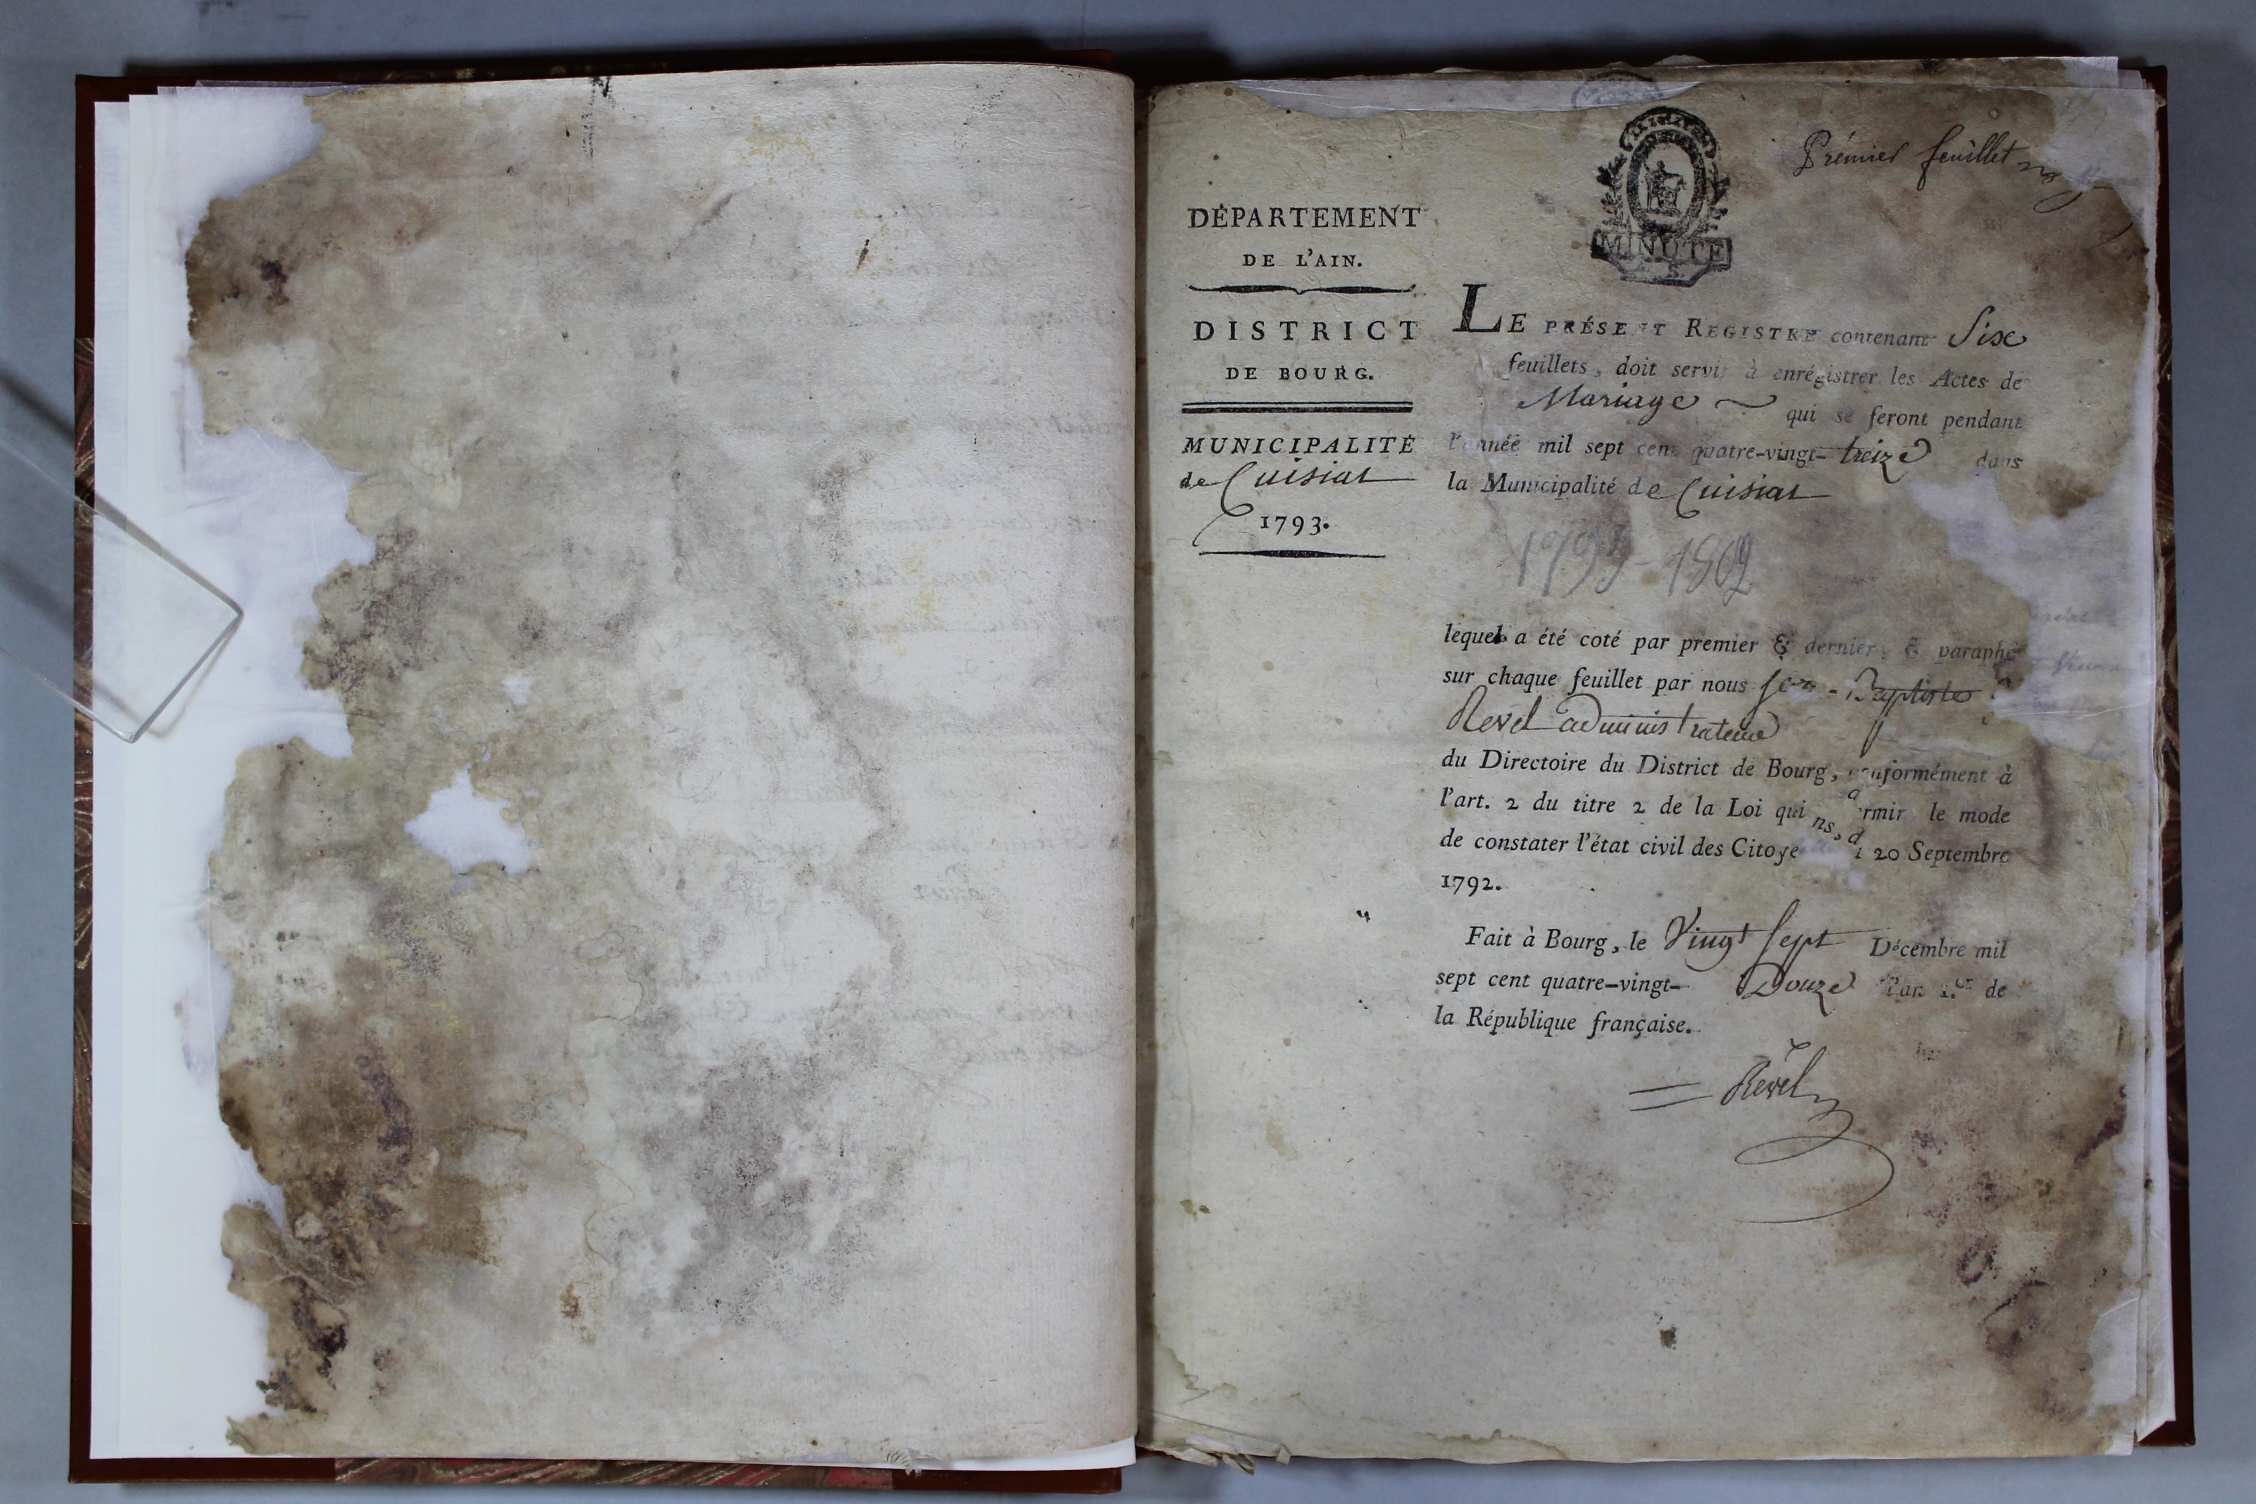 Premier feuillet
MINUTE
DÉPARTEMENT
DE L'AIN.
DISTRICT
DE BOURG.
MUNICIPALITÉ
de Cuisiat
1793.
LE PRÉSENT REGISTRE contenant Six
feuillets, doit servir à enrégistrer les Actes de
Mariage qui se feront pendant
l'année mil sept cent quatre-vingt-treize dans
la Municipalité de Cuisiat
1793-1802
lequel a été coté par premier & dernier, & paraphé
sur chaque feuillet par nous Jean-Baptiste
Revel administrateur
du Directoire du District de Bourg, conformément à
l'art. 2 du titre 2 de la Loi qui rmir le mode
de constater l'état civil des Citoyens, d 20 Septembre
1792.
Fait à Bourg, le Vingt Sept Décembre mil
sept cent quatre-vingt-Douze l'an 1.er de
la République française.
Revel